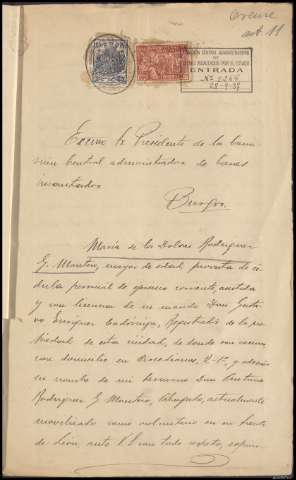 Orense
art. 11
COMISIÓN CENTRAL ADMINISTRADORA
DE
BIENES INCAUTADOS POR EL ESTADO
ENTRADA
Nº 2264
28-9-37
Excmo Sr Presidente de la Comi
sión Central administradora de bienes
incautados
Burgos.
María de los Dolores Rodríguez
G. Montero, mayor de edad provista de cé
dula personal de ejercicio corriente, asistida
y con licencia de su marido Don Gusta
vo Enríquez Cadórniga, Registrador de la pro
piedad de esta ciudad, de donde son veci
nos con domicilio en
y además
en nombre de mi hermano Don
Rodríguez G Montero, Abogado, actualmente
movilizado como voluntario en el frente
de León, ante V.E con todo respeto, expone